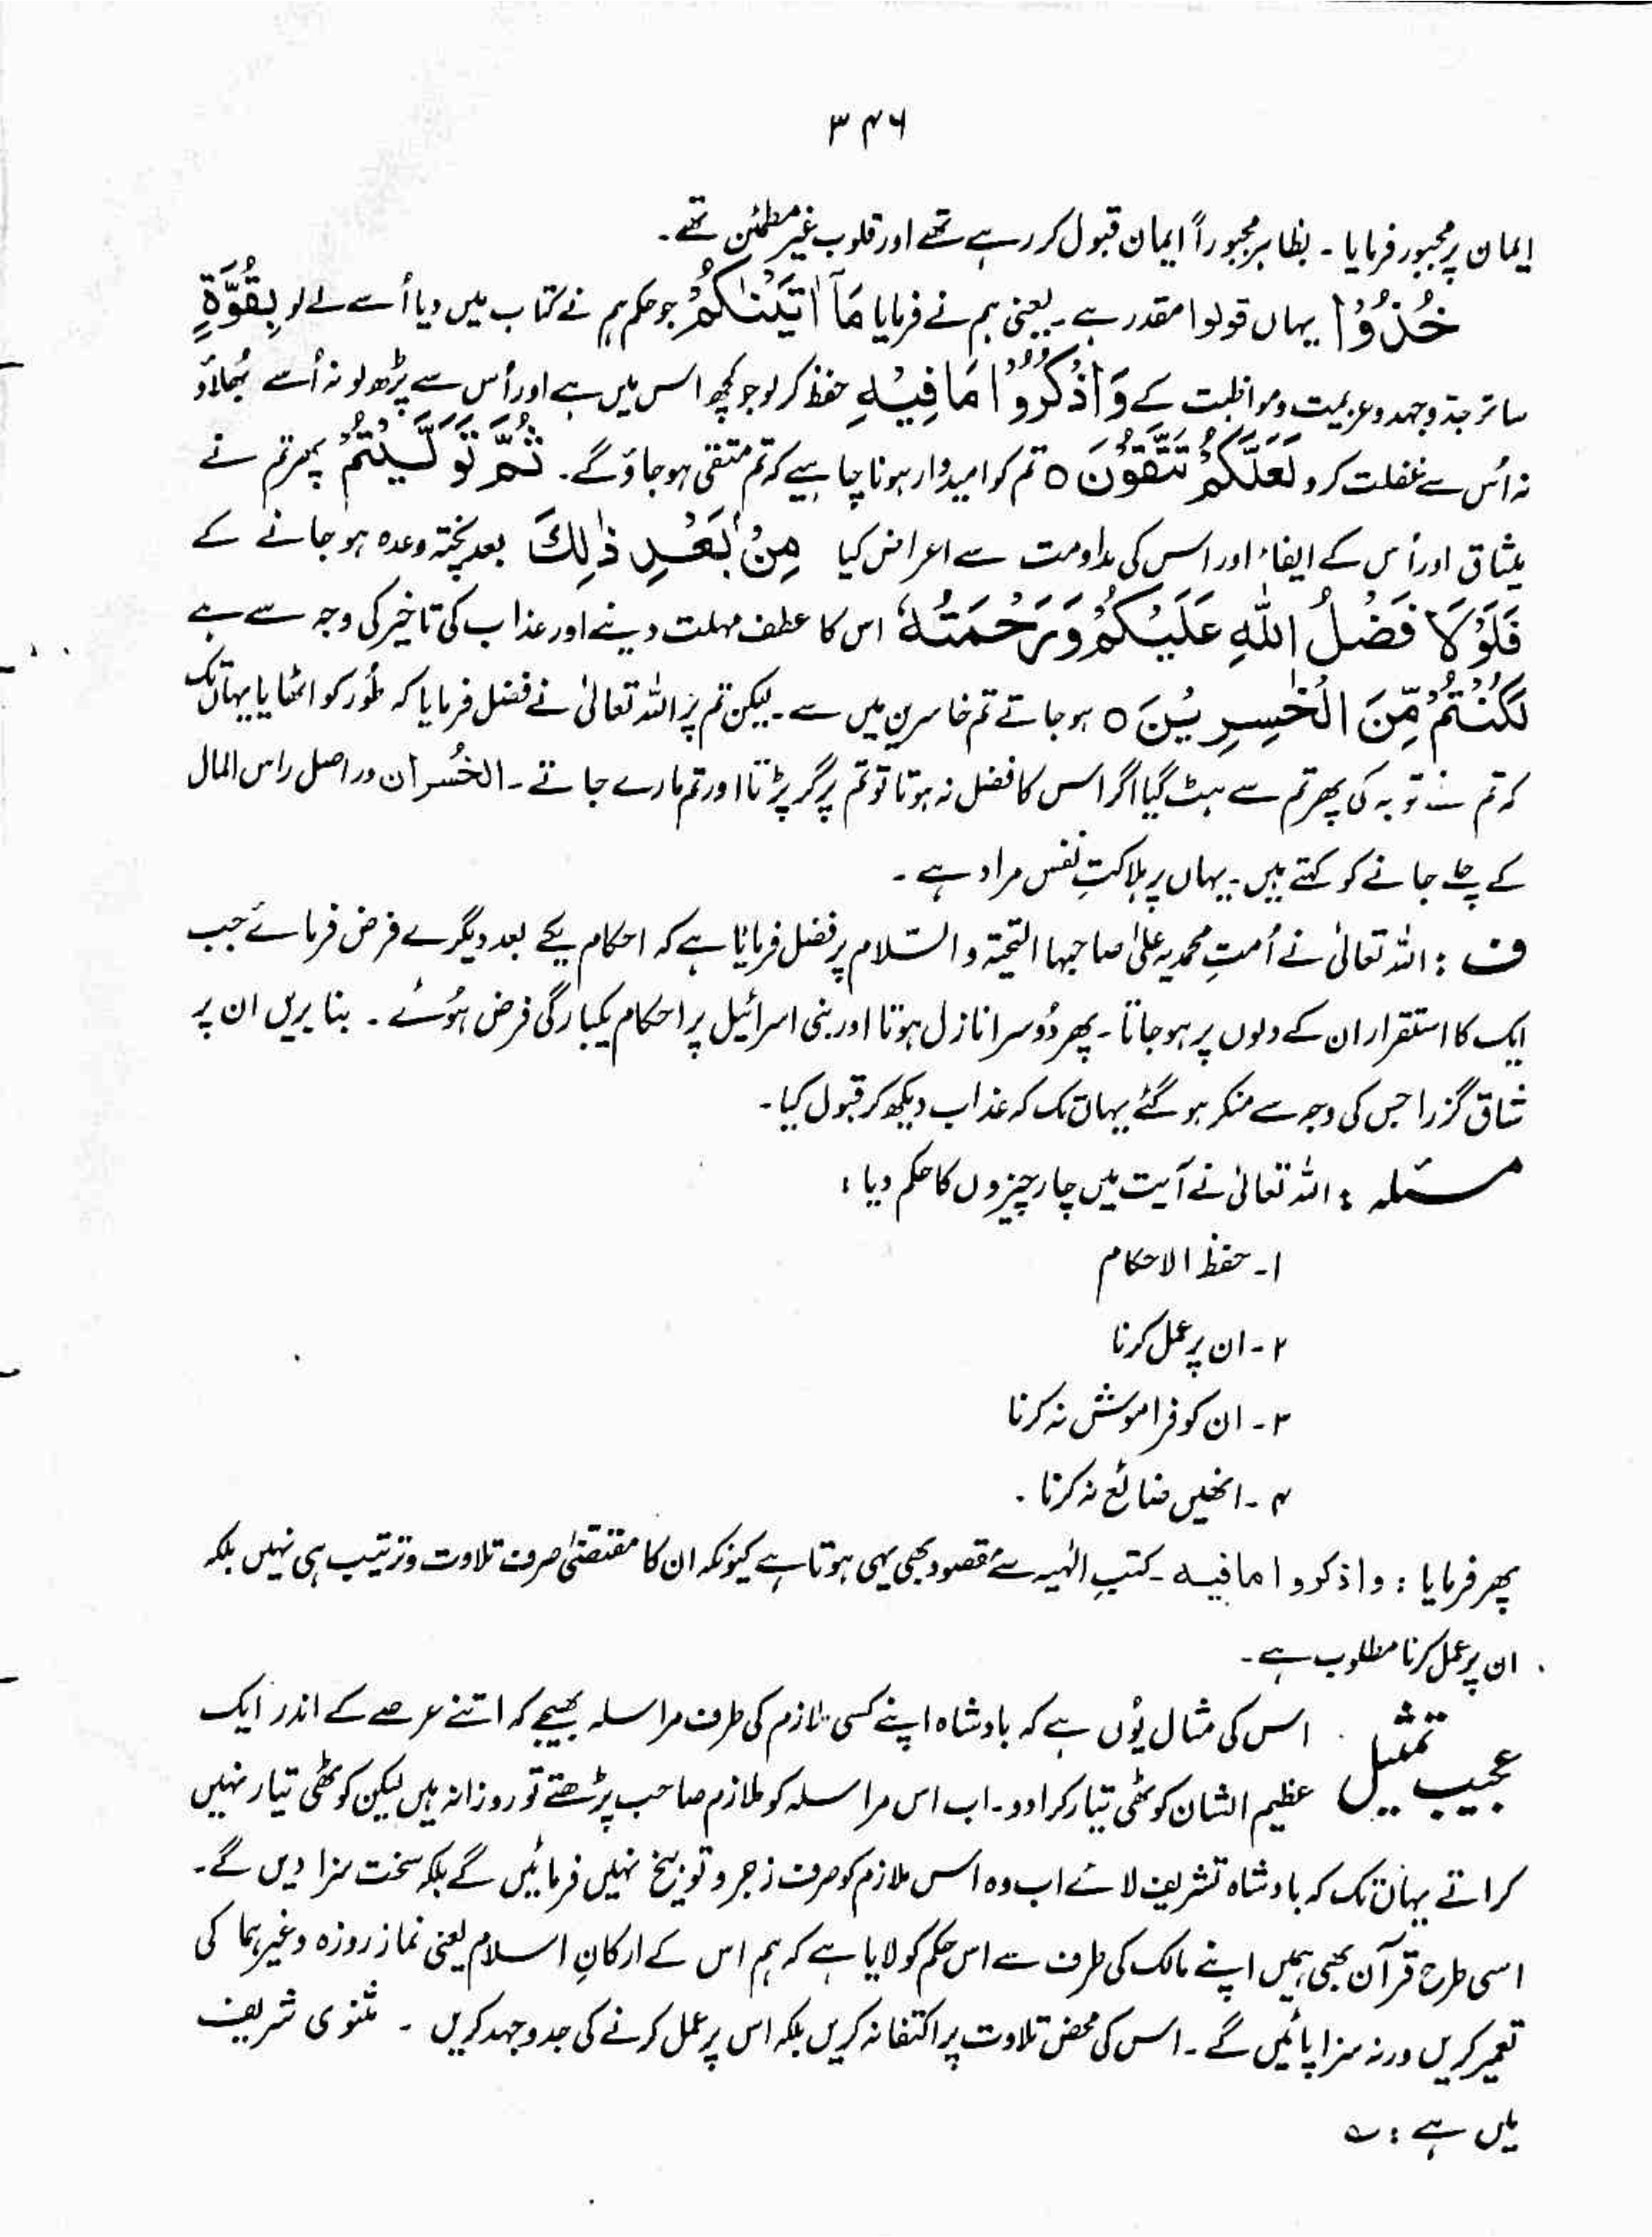 ۳۴۶
ایمان پر مجبور فرمایا ۔ بظاہر مجبوراً ایمان قبول کر رہے تھے اور قلوب غیر مطمئن تھے ۔
خُذُوْا یہاں قولوا مقدر ہے ۔ یعنی ہم نے فرمایا مَآ اٰتَیْنٰکُمْ جو حکم ہم نے کتاب میں دیا اُسے لے لو بِقُوَّۃٍ
ساتھ جد و جہد و عزیمت و مواظبت کے وَاذْکُرُوْا مَا فِیْہِ حفظ کر لو جو کچھ اس میں ہے اور اُس سے پڑھ لو نہ اُسے بُھلاؤ
نہ اُس سے غفلت کرو لَعَلَّکُمْ تَتَّقُوْنَ ○ تم کو امیدوار ہونا چاہیے کہ تم متقی ہو جاؤ گے ۔ ثُمَّ تَوَلَّیْتُمْ پھر تم نے
میثاق اور اُس کے ایفاء اور اس کی مداومت سے اعراض کیا مِنْۢ بَعْدِ ذٰلِکَ بعد پختہ وعدہ ہو جانے کے
فَلَوْلَا فَضْلُ اللّٰہِ عَلَیْکُمْ وَرَحْمَتُہٗ اس کا عطف مہلت دینے اور عذاب کی تاخیر کی وجہ سے ہے
لَکُنْتُمْ مِّنَ الْخٰسِرِیْنَ ○ ہو جاتے تم خاسرین میں سے ۔ لیکن تم پر اللہ تعالیٰ نے فضل فرمایا کہ طُور کو اٹھایا یہاں تک
کہ تم نے توبہ کی پھر تم سے ہٹ گیا اگر اس کا فضل نہ ہوتا تو تم پر گر پڑتا اور تم مارے جاتے ۔ الخُسران دراصل راس المال
کے چلے جانے کو کہتے ہیں ۔ یہاں پر ہلاکتِ نفس مراد ہے ۔
ف : اللہ تعالیٰ نے اُمتِ محمدیہ علیٰ صاحبہا التحیۃ و السّلام پر فضل فرمایا ہے کہ احکام یکے بعد دیگرے فرض فرمائے جب
ایک کا استقرار ان کے دلوں پر ہو جاتا ۔ پھر دُوسرا نازل ہوتا اور بنی اسرائیل پر احکام یکبارگی فرض ہُوئے ۔ بنا بریں ان پر
شاق گزرا جس کی وجہ سے منکر ہو گئے یہاں تک کہ عذاب دیکھ کر قبول کیا ۔
مسئلہ : اللہ تعالیٰ نے آیت میں چار چیزوں کا حکم دیا :
۱ ۔ حفظ الاحکام
۲ ۔ ان پر عمل کرنا
۳ ۔ ان کو فراموش نہ کرنا
۴ ۔ انھیں ضائع نہ کرنا ۔
پھر فرمایا : واذکروا ما فیہ ۔ کتبِ الٰہیہ سے مقصود بھی یہی ہوتا ہے کیونکہ ان کا مقتضیٰ صرف تلاوت و ترتیب ہی نہیں بلکہ
ان پر عمل کرنا مطلوب ہے ۔
عجیب تمثیل اس کی مثال یُوں ہے کہ بادشاہ اپنے کسی ملازم کی طرف مراسلہ بھیجے کہ اتنے عرصے کے اندر ایک
عظیم الشان کوٹھی تیار کرا دو ۔ اب اس مراسلہ کو ملازم صاحب پڑھتے تو روزانہ ہیں لیکن کوٹھی تیار نہیں
کراتے یہاں تک کہ بادشاہ تشریف لائے اب وہ اس ملازم کو صرف زجر و توبیخ نہیں فرمائیں گے بلکہ سخت سزا دیں گے ۔
اسی طرح قرآن بھی ہمیں اپنے مالک کی طرف سے اس حکم کو لایا ہے کہ ہم اس کے ارکانِ اسلام یعنی نماز روزہ وغیرہما کی
تعمیر کریں ورنہ سزا پائیں گے ۔ اس کی محض تلاوت پر اکتفا نہ کریں بلکہ اس پر عمل کرنے کی جد و جہد کریں ۔ مثنوی شریف
میں ہے : ؎